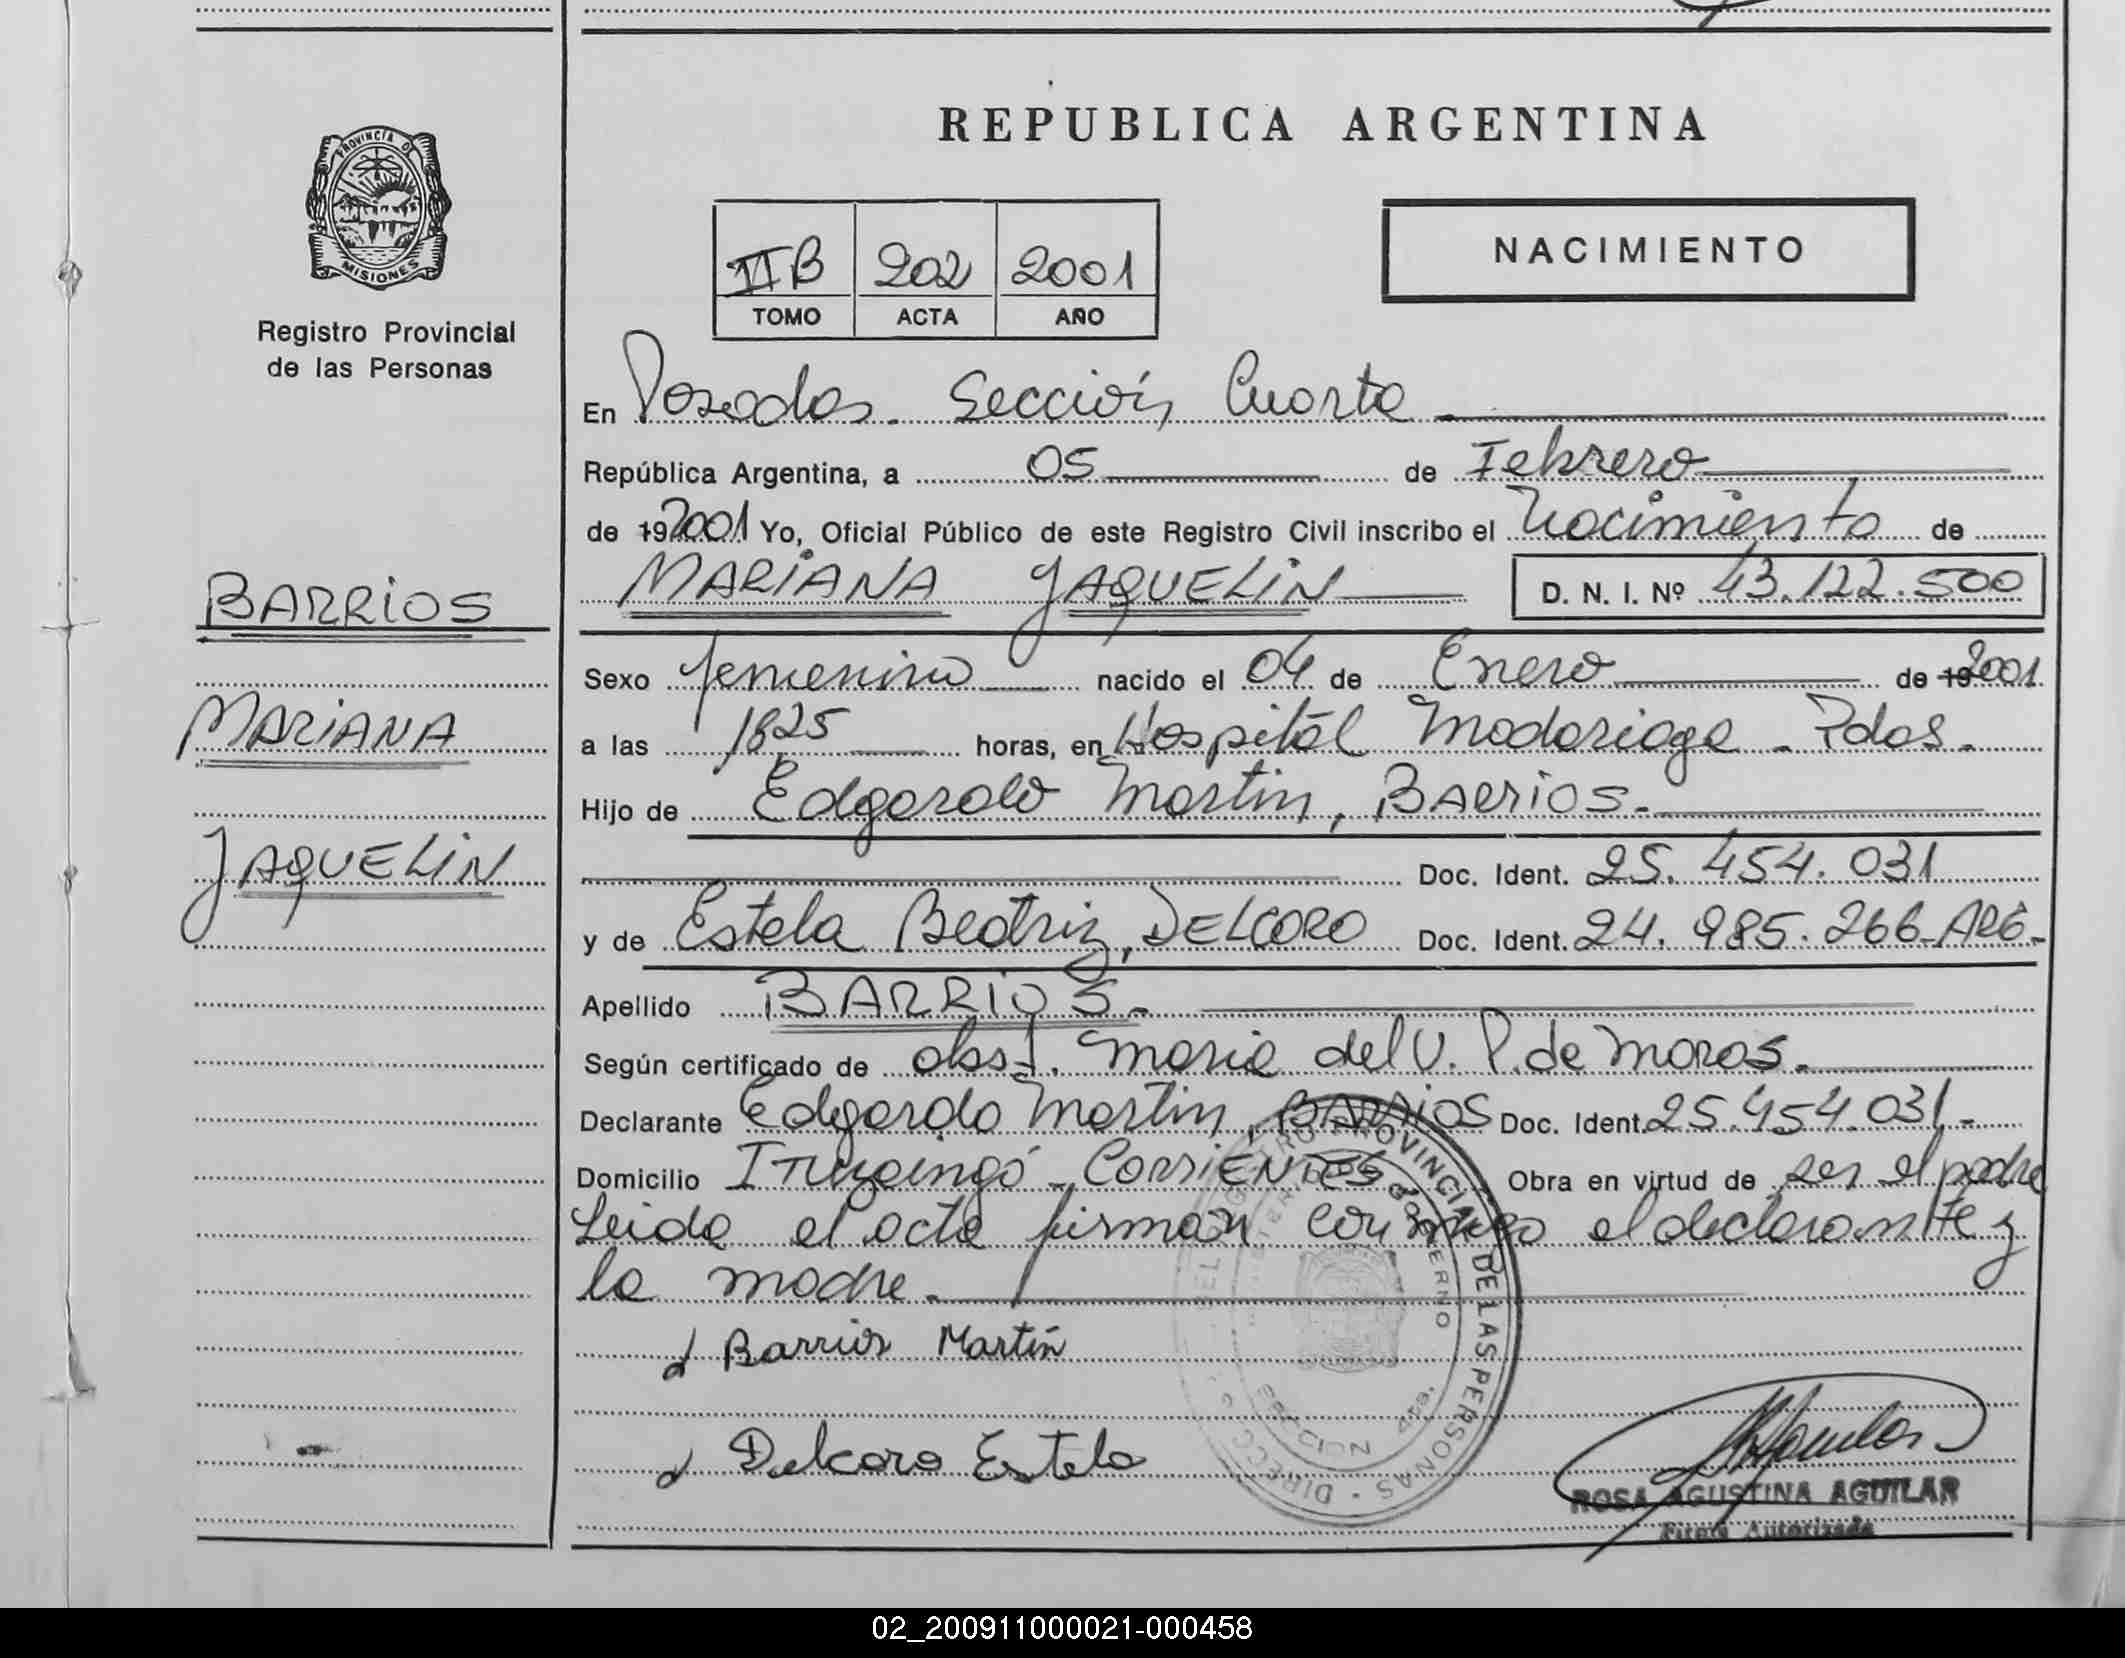 REPUBLICA ARGENTINA
PROVINCIA DE
MISIONES
Registro Provincial
de las Personas
II B 202 2001
TOMO ACTA AÑO
NACIMIENTO
En Posadas. Sección Cuarta
República Argentina, a 05 de Febrero
de 19 2001 Yo, Oficial Público de este Registro Civil inscribo el Nacimiento de
MARIANA JAQUELIN D. N. I. Nº 43.122.500
BARRIOS
MARIANA
JAQUELIN
Sexo femenino nacido el 04 de Enero de 19 2001
a las 1825 horas, en Hospital Madariaga - Pdas.
Hijo de Edgardo Martin, BARRIOS.-
Doc. Ident. 25.454.031
y de Estela Beatriz, DELCORO Doc. Ident. 24.985.266-ARG-
Apellido BARRIOS.-
Según certificado de obst. Maria del V. P. de Moras.
Declarante Edgardo Martin, BARRIOS Doc. Ident. 25.454.031.-
Domicilio Ituzaingó - CORRIENTES Obra en virtud de ser el padre
Leida el acta firman conmigo el declarante y
la madre.-
Barrios Martín
Delcoro Estela
REGISTRO PROVINCIAL DE LAS PERSONAS - DIRECC
GOBIERNO
SECCION 4ta.
ROSA AGUSTINA AGUILAR
Firma Autorizada
02_200911000021-000458